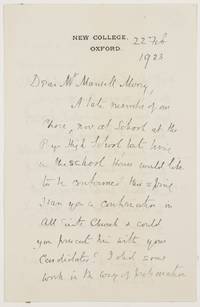 NEW COLLEGE,
OXFORD.
22 Feb
1923
Dear Mr Maxwell
A late member of our
Choir, now at School at the
High School but living
in the School House would like
to be confirmed this spring
you a confirmation in
All Church & could
you present him with your
Candidates? I did some
work in the way of preparation